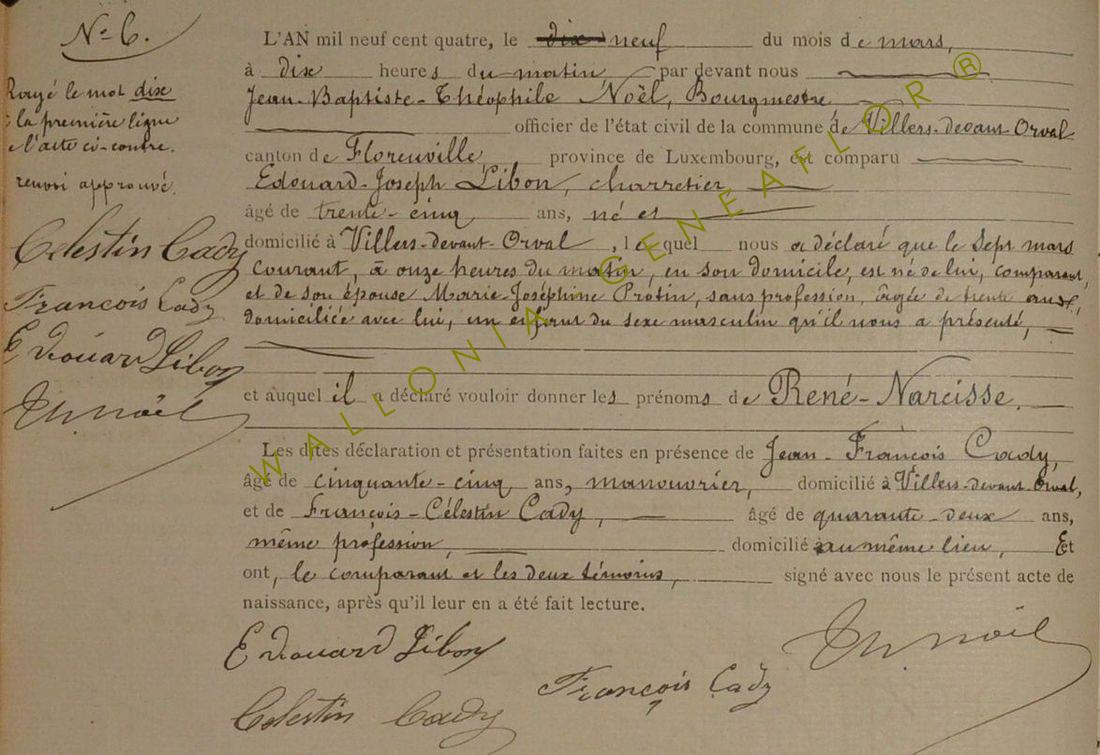 N° 6.
Rayé le mot dix
à la première ligne
de l'acte ci-contre.
renvoi approuvé.
Celestin Cady
François Cady
Edouard Libon
Th Noël
L'AN mil neuf cent quatre, le dix neuf du mois de mars,
à dix heures du matin, par devant nous
Jean-Baptiste-Théophile Noël, Bourgmestre
officier de l'état civil de la commune de Villers-devant-Orval
canton de Florenville, province de Luxembourg, est comparu
Edouard-Joseph Libon, charretier,
âgé de trente-cinq ans, né et
domicilié à Villers-devant-Orval, lequel nous a déclaré que le sept mars
courant, à onze heures du matin, en son domicile, est né de lui, comparant,
et de son épouse Marie Joséphine Protin, sans profession, âgée de trente ans,
domiciliée avec lui, un enfant du sexe masculin qu'il nous a présenté,
et auquel il a déclaré vouloir donner les prénoms de René-Narcisse.
Les dites déclaration et présentation faites en présence de Jean-François Cady,
âgé de cinquante-cinq ans, manouvrier, domicilié à Villers-devant-Orval,
et de François-Célestin Cady, âgé de quarante-deux ans,
même profession, domicilié au même lieu, Et
ont, le comparant et les deux témoins, signé avec nous le présent acte de
naissance, après qu'il leur en a été fait lecture.
Edouard Libon
Th Noël
François Cady
Celestin Cady
WALLONIA GENEAFLOR ®